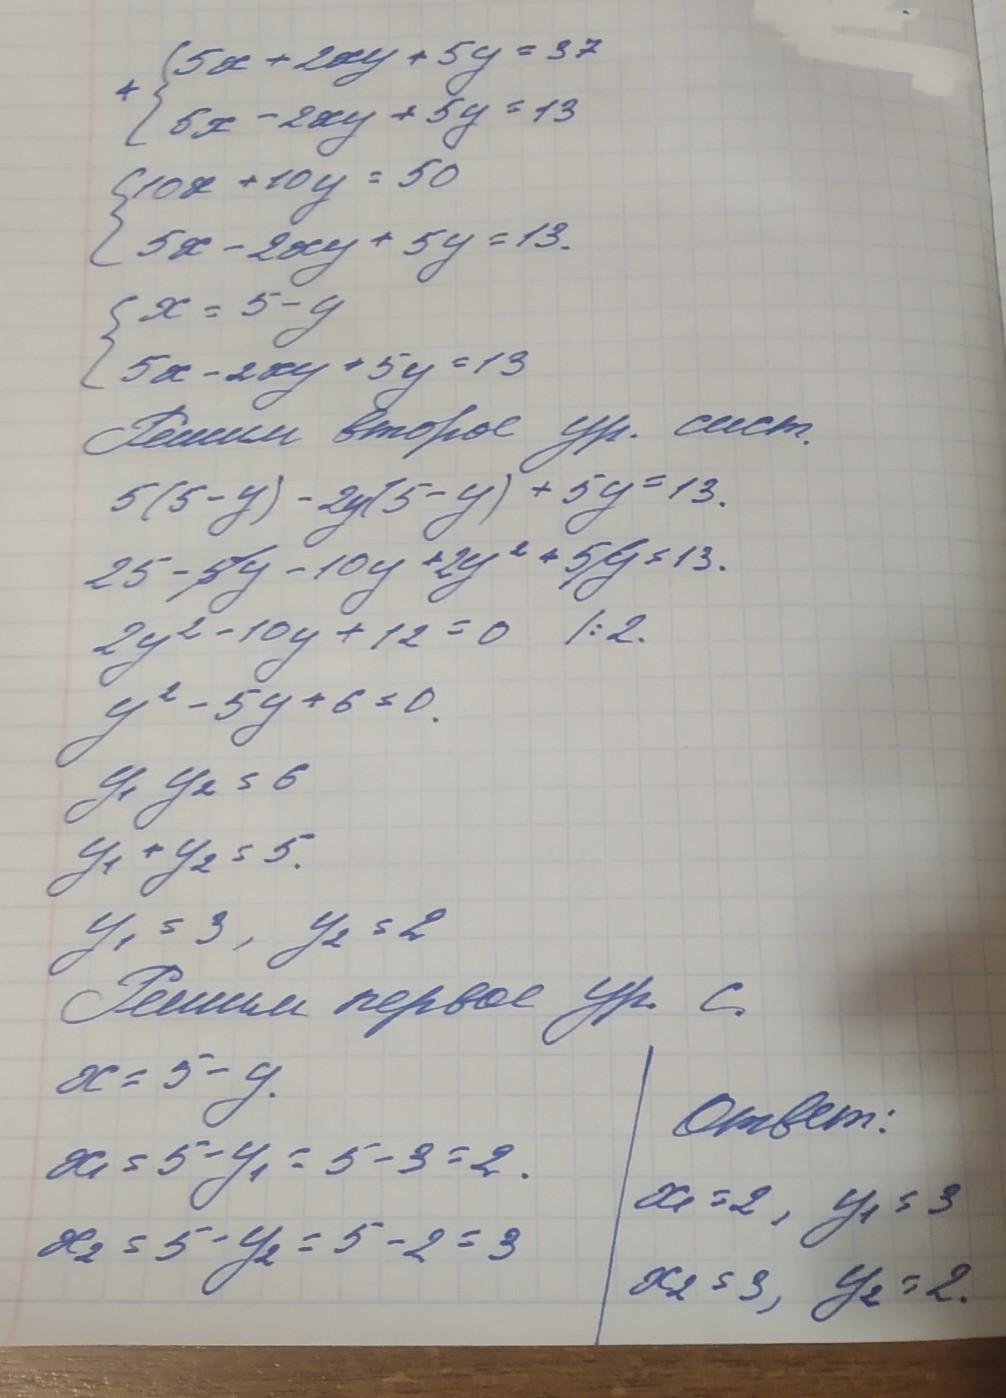 + { 5x + 2xy + 5y = 37
5x - 2xy + 5y = 13
{ 10x + 10y = 50
5x - 2xy + 5y = 13.
{ x = 5 - y
5x - 2xy + 5y = 13
Решим второе ур. сист.
5(5 - y) - 2y(5 - y) + 5y = 13.
25 - 5y - 10y + 2y² + 5y = 13.
2y² - 10y + 12 = 0 /:2.
y² - 5y + 6 = 0.
y₁ y₂ = 6
y₁ + y₂ = 5.
y₁ = 3, y₂ = 2
Решим первое ур. с.
x = 5 - y.
x₁ = 5 - y₁ = 5 - 3 = 2.
x₂ = 5 - y₂ = 5 - 2 = 3
Ответ:
x₁ = 2, y₁ = 3
x₂ = 3, y₂ = 2.